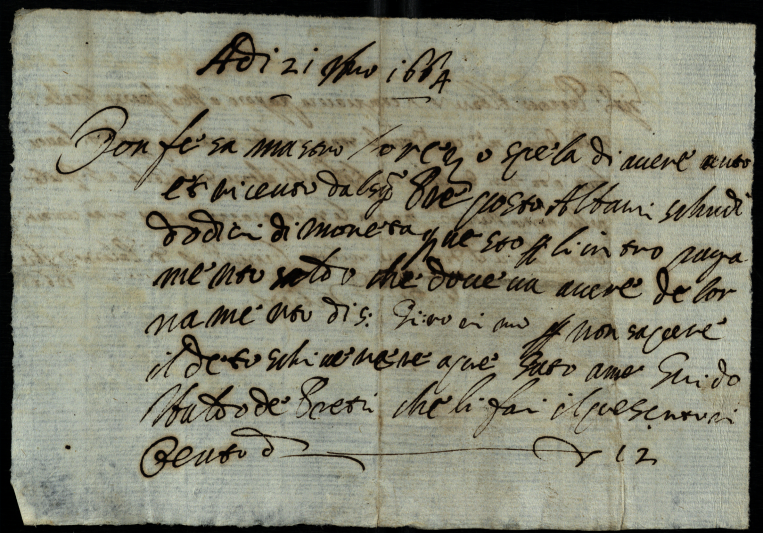 Adi 21 9bro 1664
Confesa mastro Lorenzo spela di avere auto
et riceuto dal sig.r Preposto Albani schudi
dodici di moneta questo p lintro paga
mento saldo che doveva avere de lor
namento di s: Girocimo p non sapere
il deto schrivere apre gato ame Guido
Ubaldo de Preti che li fai il presente ri
ceuto d 12